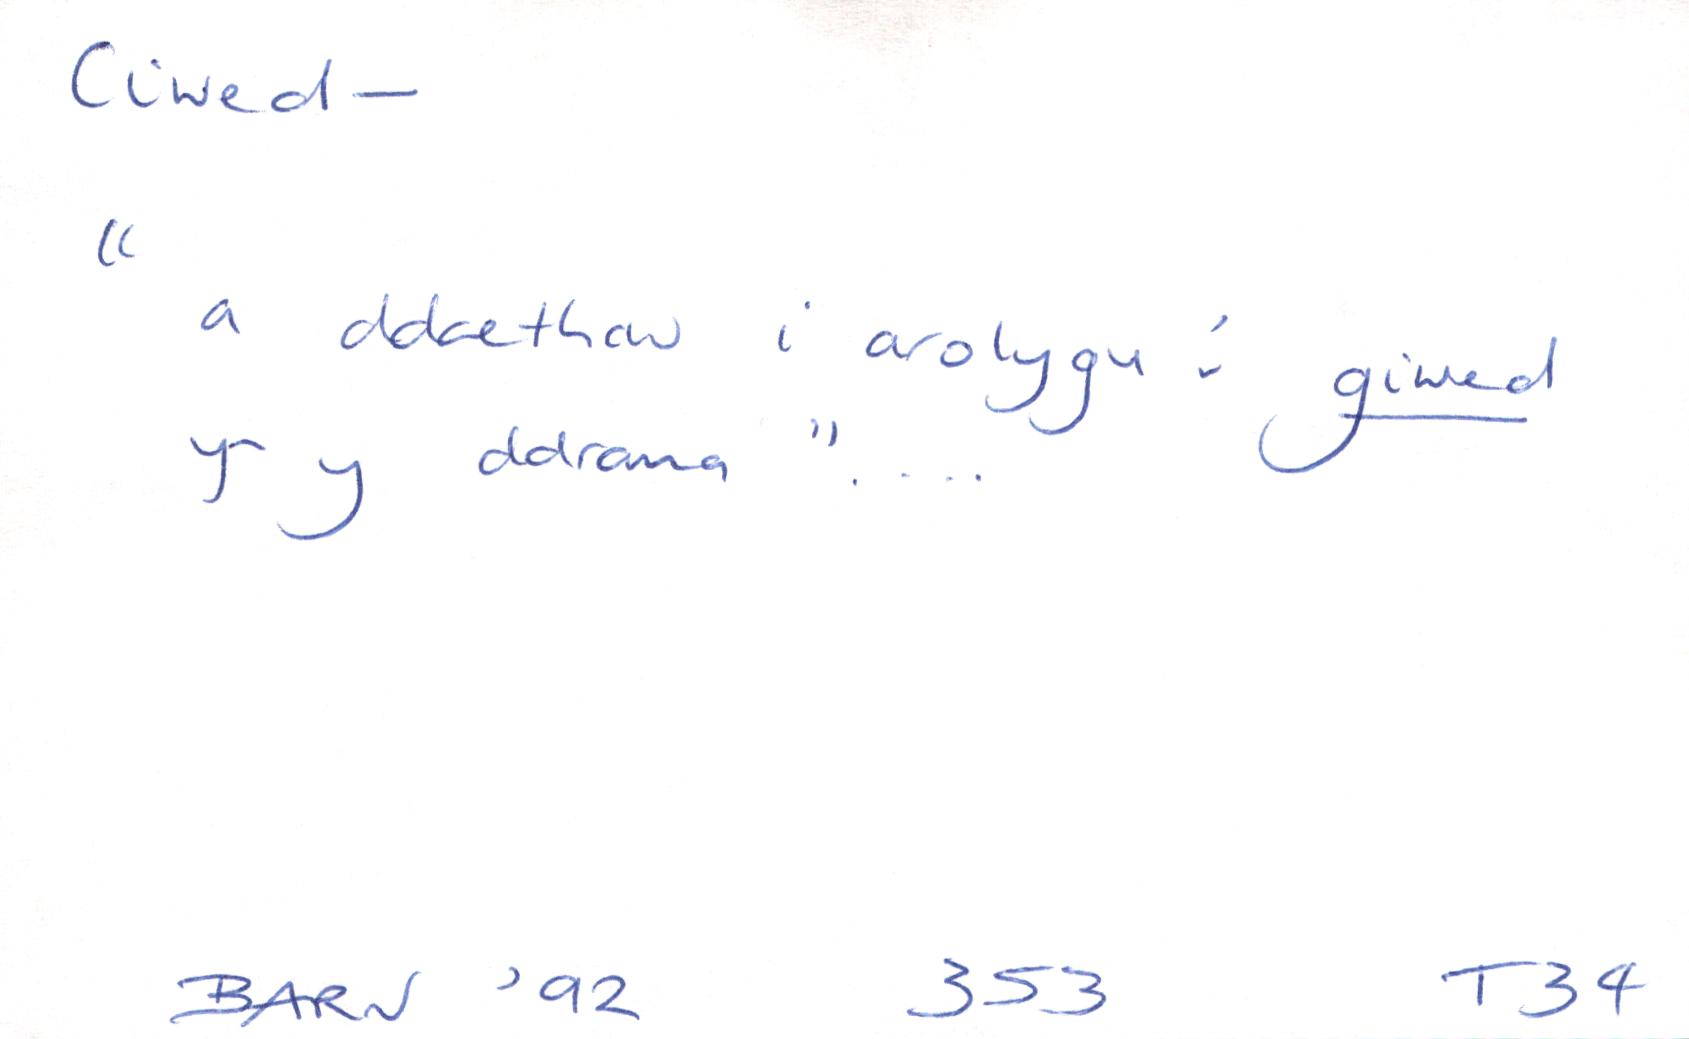 Ciwed —
"
a ddaethaw i arolygu 'i giwed
yr y ddrama" ....
BARN '92 353 T34